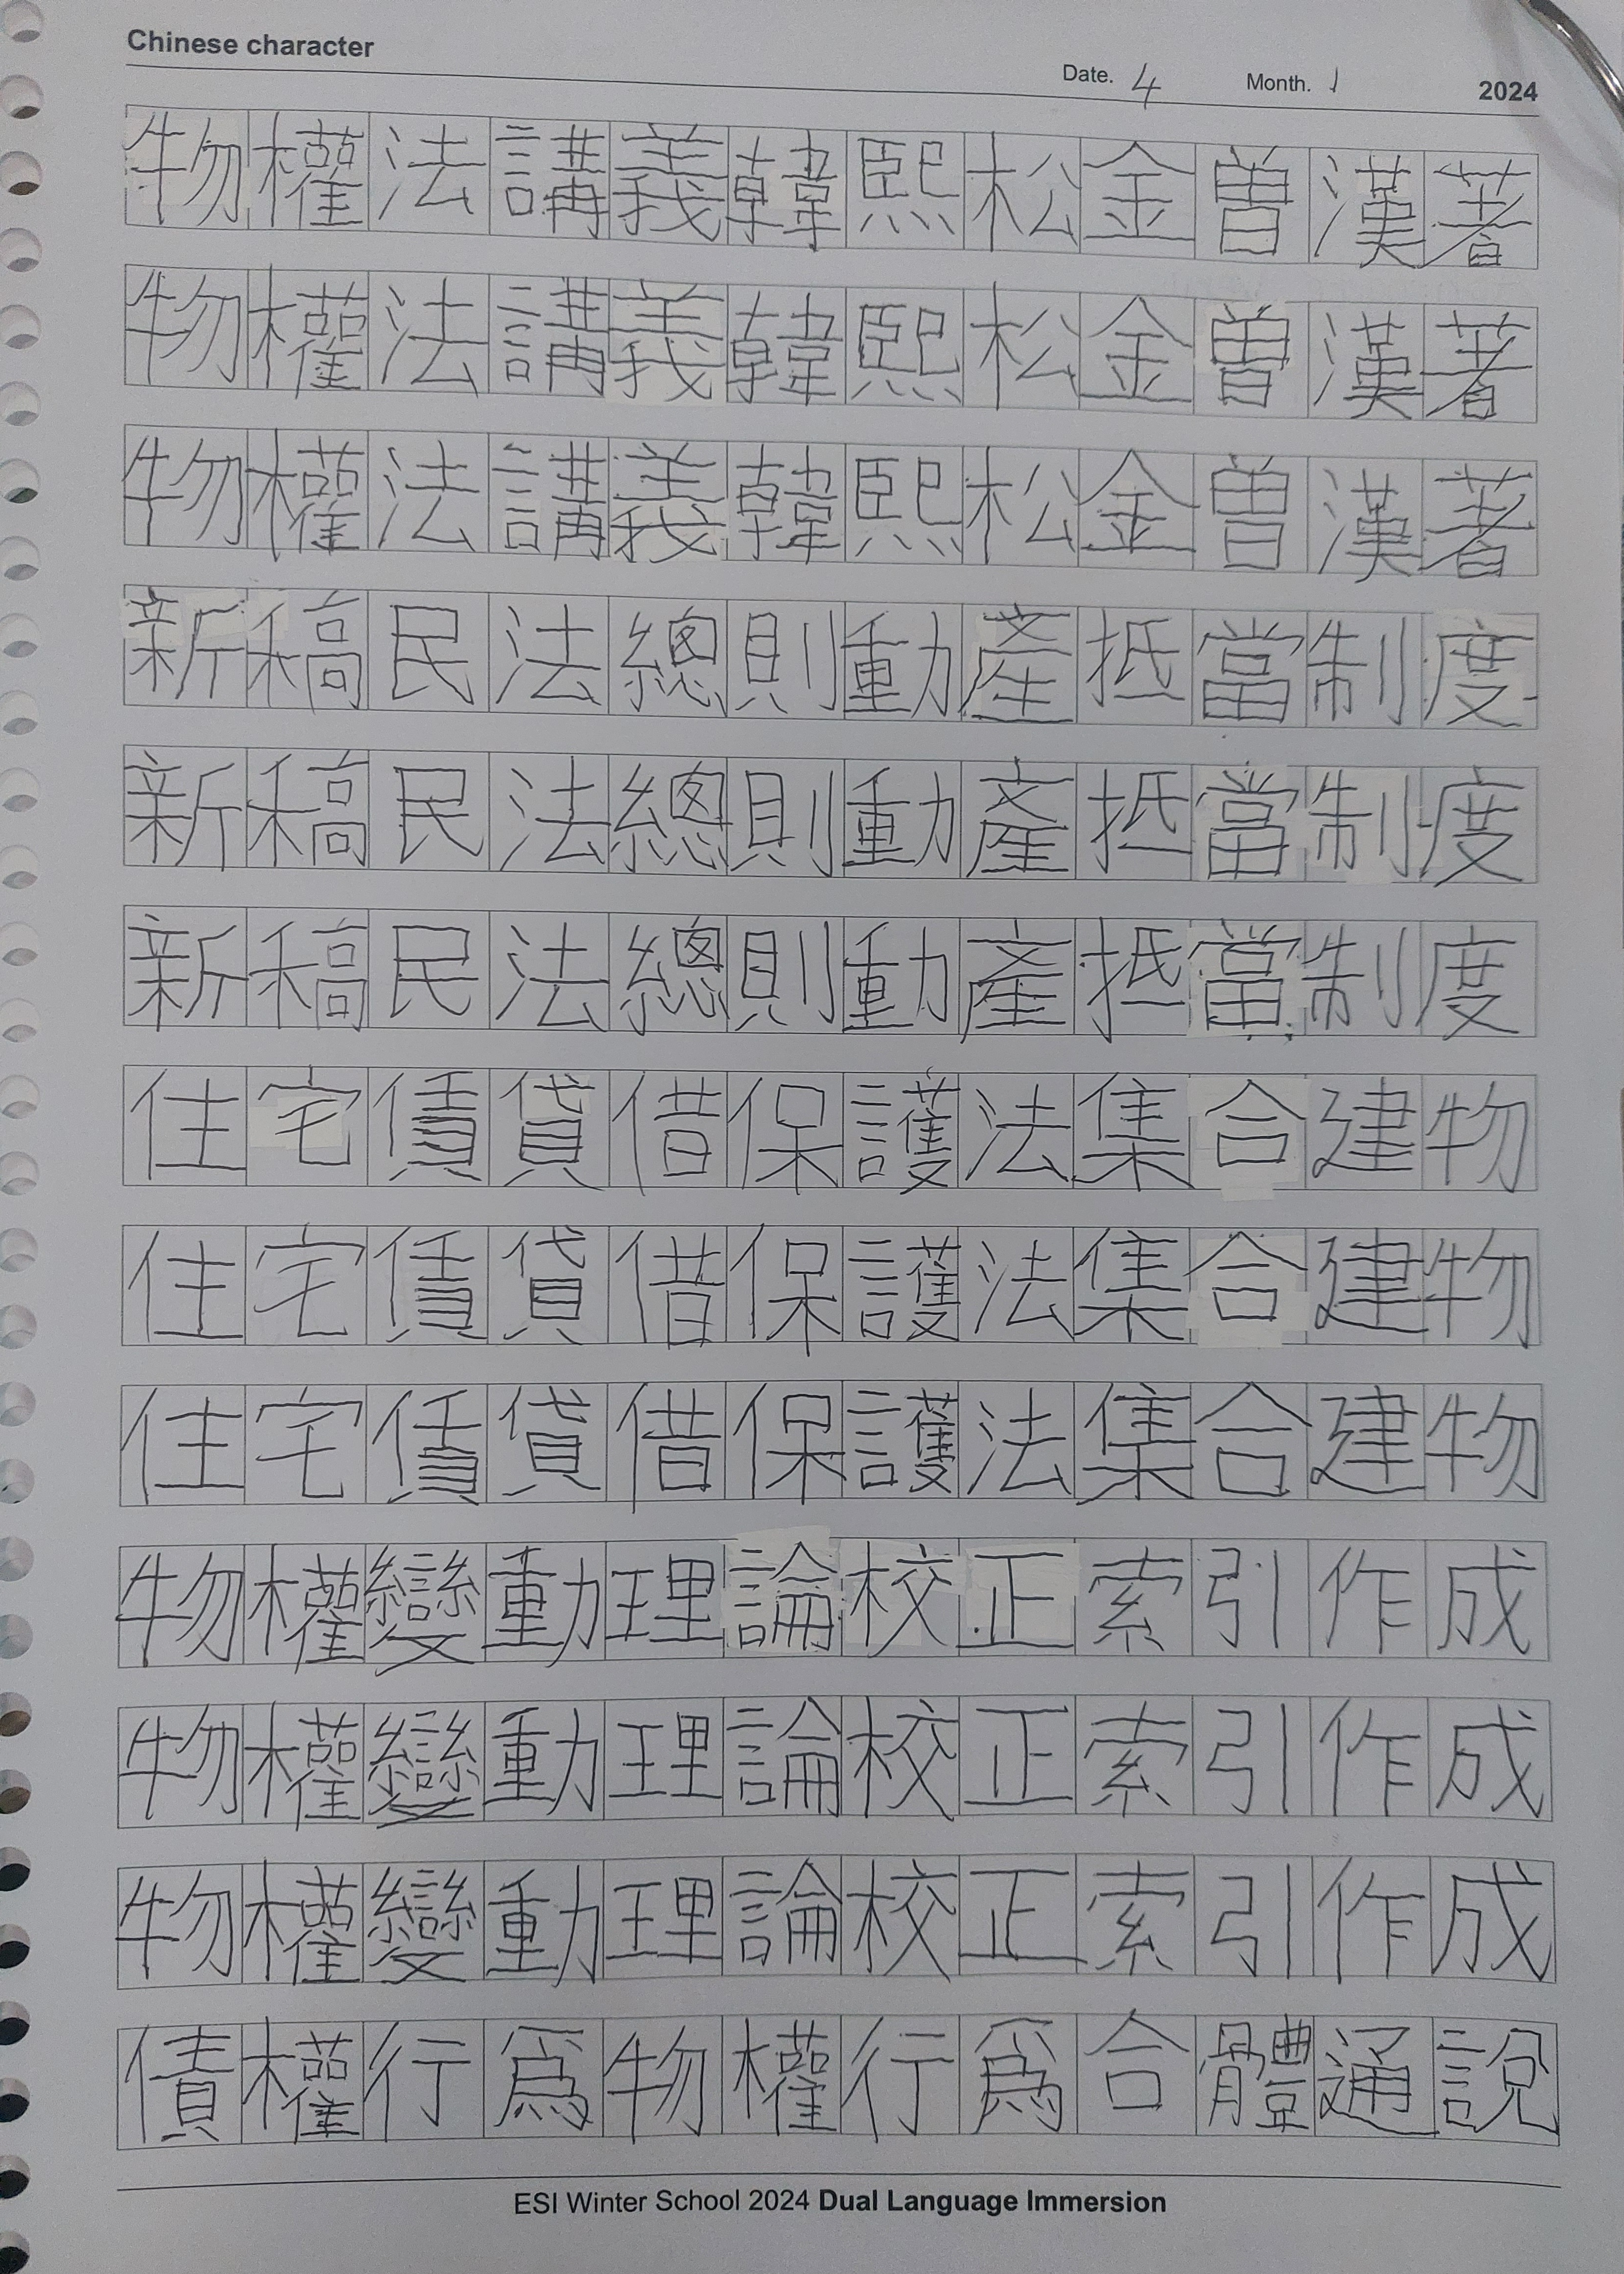 Chinese character
Date. 4 Month. 1 2024
物權法講義韓熙松金曾漢著
物權法講義韓熙松金曾漢著
物權法講義韓熙松金曾漢著
新稿民法總則動産抵當制度
新稿民法總則動産抵當制度
新稿民法總則動産抵當制度
住宅賃貸借保護法集合建物
住宅賃貸借保護法集合建物
住宅賃貸借保護法集合建物
物權變動理論校正索引作成
物權變動理論校正索引作成
物權變動理論校正索引作成
債權行爲物權行爲合體通說
ESI Winter School 2024 Dual Language Immersion